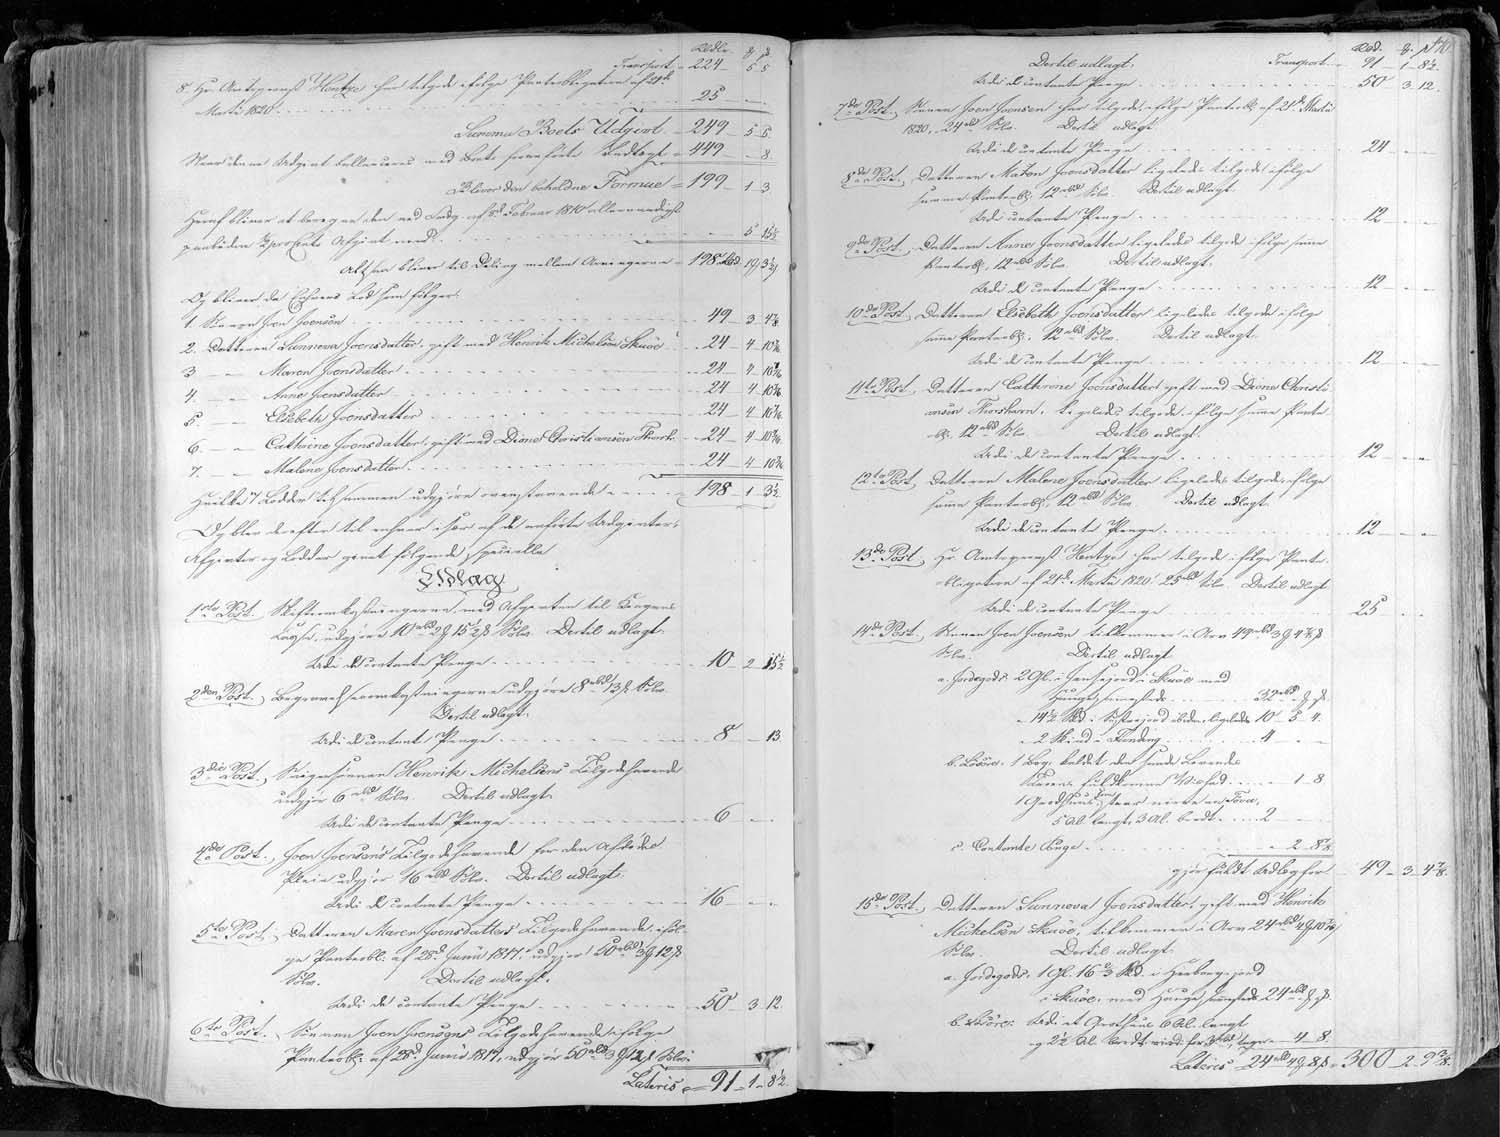 Rbdlr. ꝳ ẞ
Transport = 224 – 5 – 5
8. Hr Amtsprovst Hentze har tilgode ifølge Pantobligation af 21de
Martii 1820 25 – –
Summa Boets Udgivt 249 – 5 – 5
Naar denne Udgivt ballanceres med Boets foranførte Indtægt = 449 – – 8.
Bliver den beholdne Formue = 199 – 1 – 3
Heraf bliver at beregne den ved Fordg. af 8de Februar 1810 allernaadigst
paabudne ½ procents Afgivt med 5 15½
Altsaa bliver til Deling mellem Arvingerne = 198 Rbd. 1 ꝳ 3½ ẞ
Og bliver da Enhvers Lod som følger:
1. Sønnen Joen Joensen 49 – 3 – 4⅞
2. Datteren Sunneva Joensdatter, gift med Henrik Michelsen Skuøe 24 – 4 – 10 7/16
3 – Maren Joensdatter 24 – 4 – 10 7/16
4. – Anne Joensdatter 24 – 4 – 10 7/16
5. – Elsebeth Joensdatter 24 – 4 – 10 7/16
6. – Cathrine Joensdatter, gift med Dione Christiansen Thorsh. 24 – 4 – 10 7/16
7. – Malene Joensdatter 24 – 4 – 10 7/16
Hvilke 7 Lodder tilsammen udgjøre ovenstaaende 198 – 1 – 3½
Og blev derefter til enhver især af de anførte Udgivter,
Afgivter og Lodder gjort følgende specielle
Udlag
1ste Post. Skifteomkostningerne med Afgivten til Kongens
Casse, udgjøre 10 Rbd 2 ꝳ 15½ ẞ Sølv. Dertil udlagt:
Udi de contante Penge 10 – 2 – 15½
2den Post. Begravelsesomkostningerne udgjøre 8 Rbd 13 ẞ Sølv.
Dertil udlagt:
Udi de contante Penge 8 – 13
3die Post. Svigersønnen Henrik Michelsens Tilgodehavende
udgjør 6 Rbd Sølv. Dertil udlagt:
Udi de contante Penge 6 – –
4de Post. Joen Joensens Tilgodehavende for den Afdødes
Pleie udgjør 16 Rbd Sølv. Dertil udlagt:
Udi de contante Penge 16 – –
5te Post. Datteren Maren Joensdatters Tilgodehavende, iføl-
ge Pantobl: af 28de Junii 1817, udgjør 50 Rbd 3 ꝳ 12 ẞ
Sølv. Dertil udlagt:
Udi de contante Penge 50 – 3 – 12
6te Post. Sønnen Joen Joensens Tilgodehavende ifølge
Pantobl: af 28de Junii 1817, udgjør 50 Rbd 3 ꝳ 12 ẞ Sølv.
Lateris = 91 – 1 – 8½
Rbd. ꝳ ẞ
Dertil udlagt: Transport 91 – 1 – 8½
Udi de contante Penge 50 – 3 – 12
7de Post. Sønnen Joen Joensen har tilgode, ifølge Pantobl. af 21de Martii
1820, 24 Rbd Sølv. Dertil udlagt
Udi de contante Penge 24 – –
8de Post. Datteren Maren Joensdatter ligeledes tilgode, ifølge
samme Pantobl., 12 Rbd Sølv. Dertil udlagt.
Udi contante Penge 12 – –
9de Post. Datteren Anne Joensdatter ligeledes tilgode, ifølge samme
Pantobl., 12 Rbd Sølv. Dertil udlagt.
Udi de contante Penge 12 – –
10de Post. Datteren Elsebeth Joensdatter ligeledes tilgode, ifølge
samme Pantobl., 12 Rbd Sølv. Dertil udlagt.
Udi de contante Penge 12 – –
11te Post. Datteren Cathrine Joensdatter, gift med Dione Christi-
ansen Thorshavn, ligeledes tilgode, ifølge samme Panto-
bl., 12 Rbd Sølv. Dertil udlagt.
Udi de contante Penge 12 – –
12te Post. Datteren Malene Joensdatter ligeledes tilgode, ifølge
samme Pantobl., 12 Rbd Sølv. Dertil udlagt.
Udi de contante Penge 12 – –
13de Post. Hr. Amtsprovst Hentze har tilgode ifølge Panto-
bligation af 21de Martii 1820, 25 Rbd Sølv. Dertil udlagt
Udi de contante Penge 25 – –
14de Post. Sønnen Joen Joensen tilkommer i Arv 49 Rbd 3 ꝳ 4⅞ ẞ
Sølv. Dertil udlagt
a. Jordegods: 2 Gl. i Huusejord i Skuøe med
Huuse, 32 Rbd – ꝳ – ẞ
14½ Skd. i ibiden, ligeledes 10 – 5 – 4.
2 Skind i 4 – –
b. Løsøre: 1 Bog kaldet den sande
1 – 8.
1 Grødhuus,
5 Al. langt, 3 Al. bredt 2 –
c. Contante Penge 2 – 8⅞
gjør fuldt Udlæg for 49 – 3 – 4⅞
15de Post. Datteren Sunneva Joensdatter, gift med Henrik
Michelsen Skuøe, tilkommer i Arv 24 Rbd 4 ꝳ 10 7/16 ẞ
Sølv. Dertil udlagt.
a. Jordegods: 1 Gl. 16⅔ Skd. i
i Skuøe, med Huuse, 24 Rbd – ꝳ – ẞ
b. Løsøre: Udi et Grothuus 6 Al. langt
og 2½ Al. bredt, 4 8.
Lateris 24 Rbd 4 ꝳ 8 ẞ = 300 – 2 – 9⅜